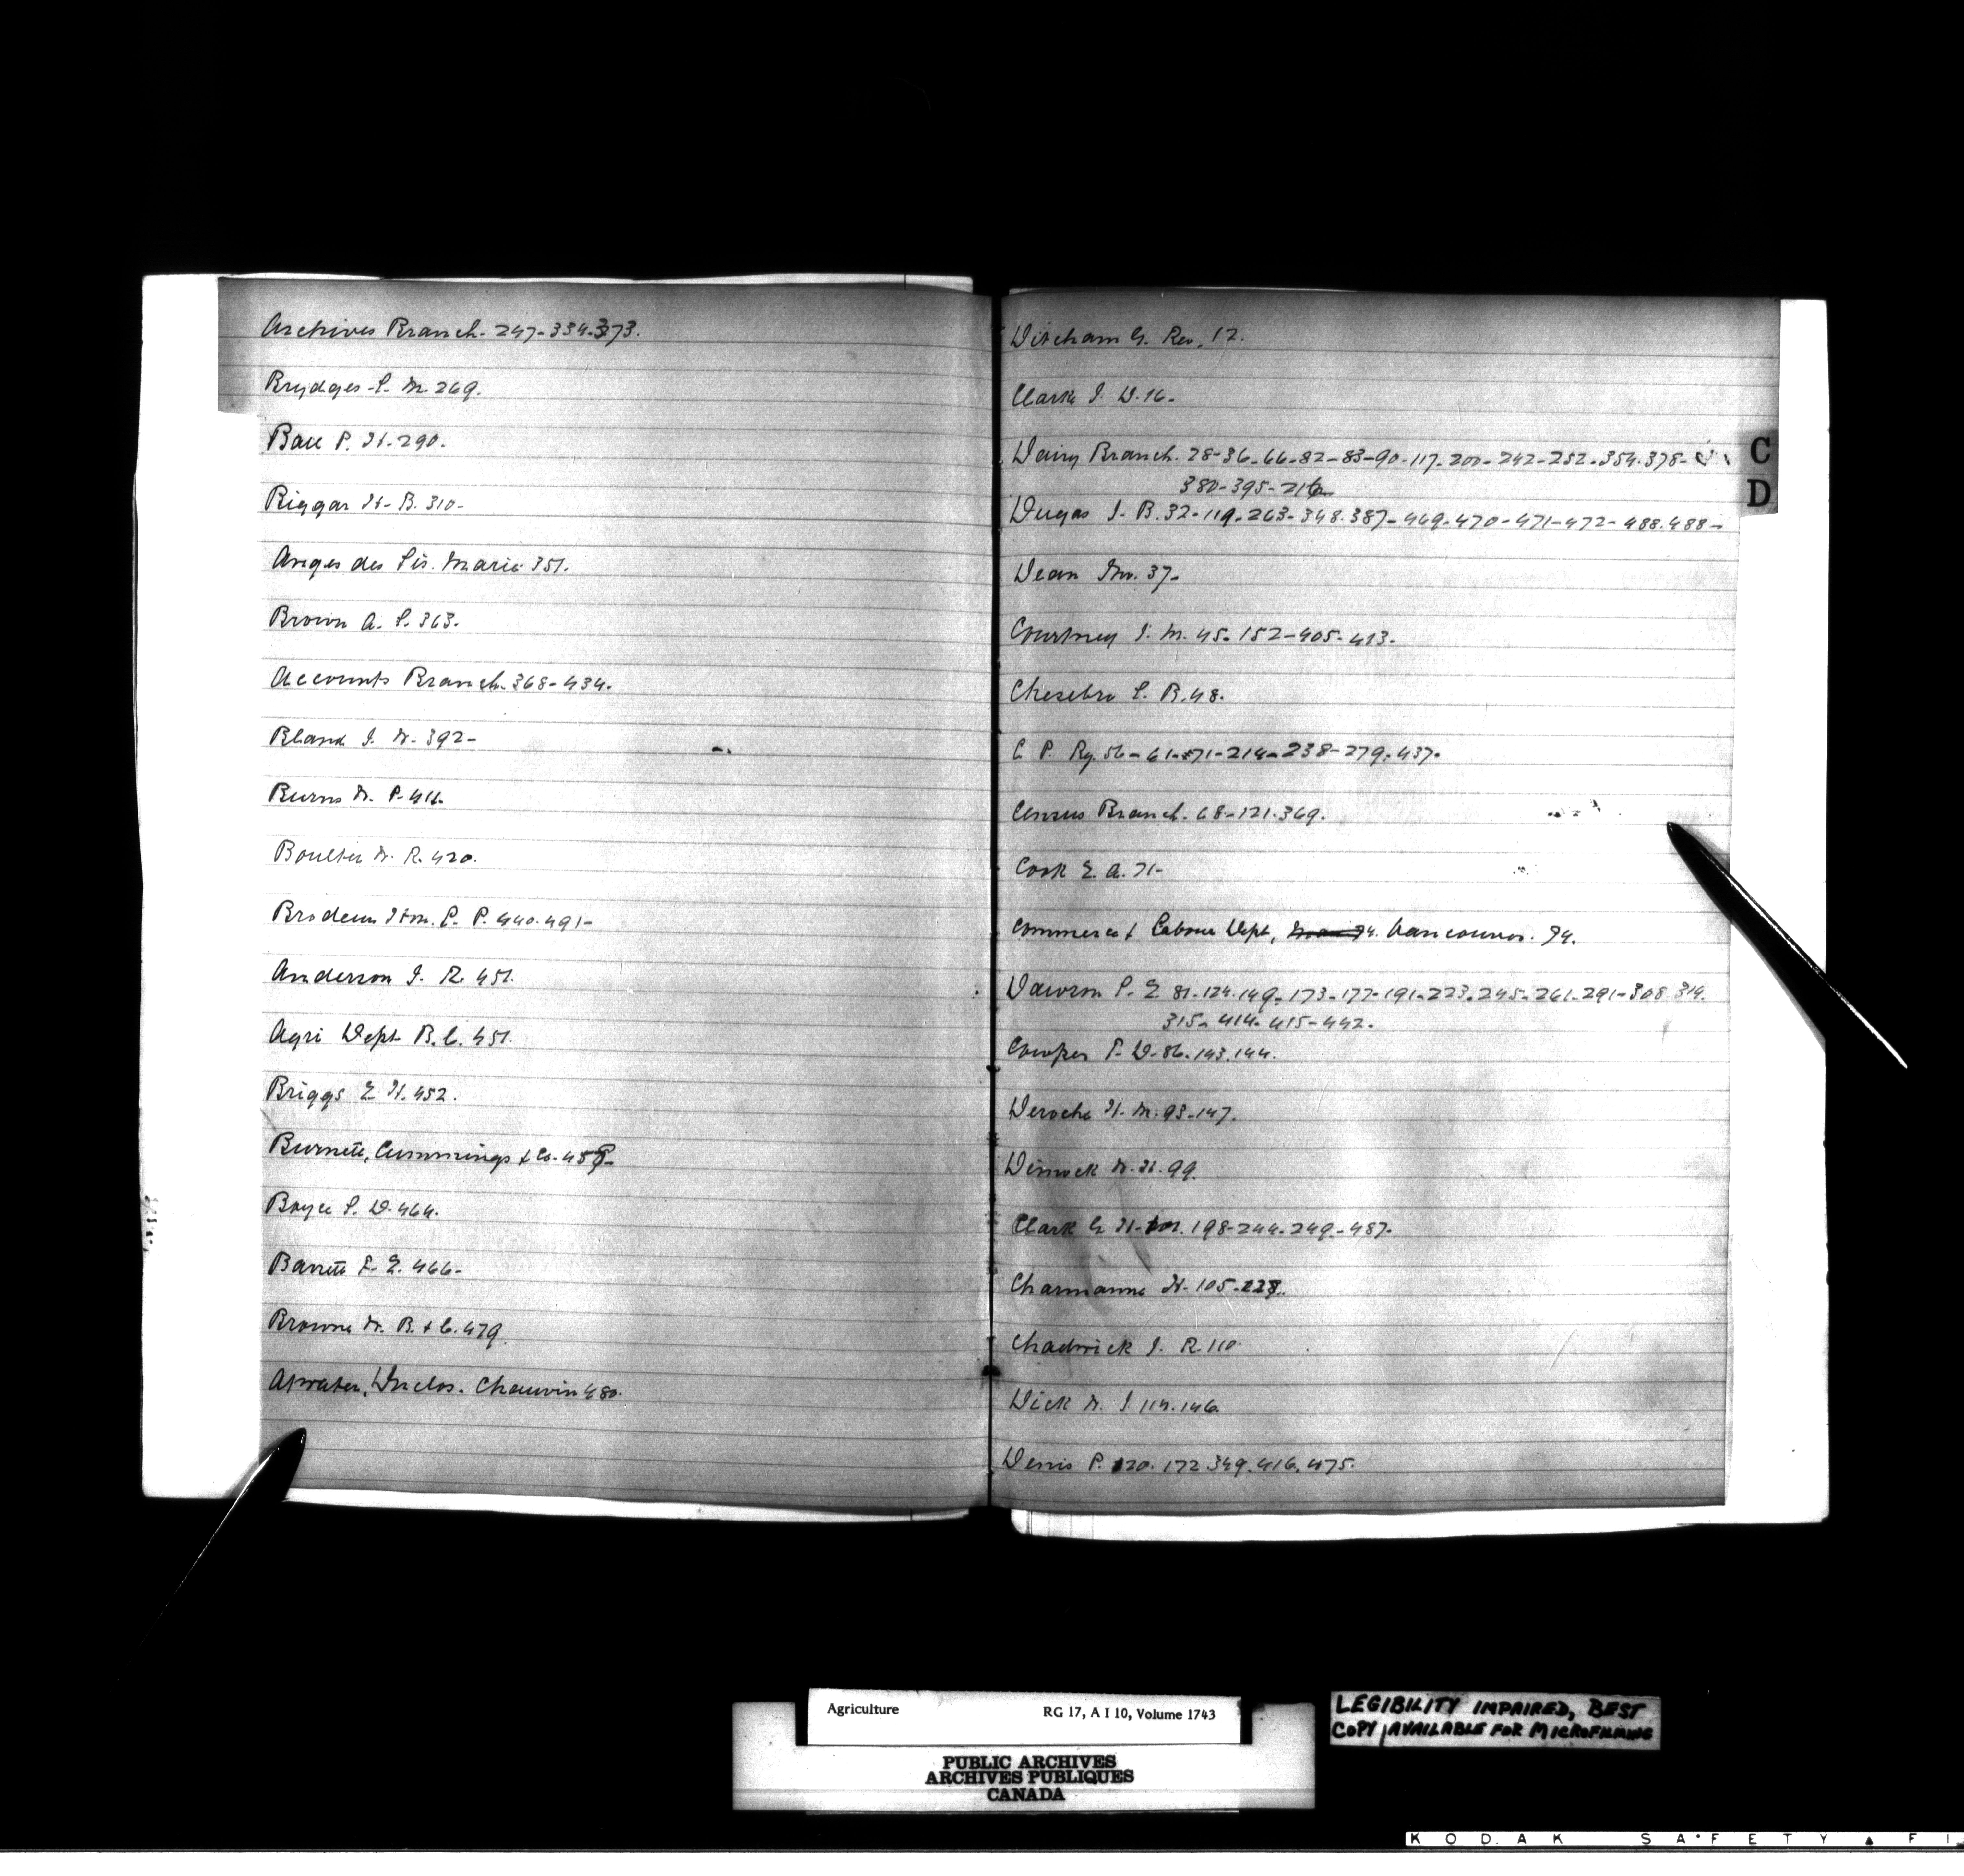 Archives Branch. 247-334-373.
Brydges - S. W. 269.
Ball P. H. 290.
Biggar H. B. 310-
Anges des Sis. Marie 351.
Brown A. S. 363.
Accounts Branch. 368-434.
Bland J. W. 392-
Burns W. P. 411.
Boulter W. R. 420.
Brodeur Hon. L. P. 440.491-
Anderson J. R. 451.
Agri Dept B.C. 451.
Briggs E H. 452.
Burnett, Cummings & Co.
Boyce S. D. 464.
Barrett E. E. 466-
Browne W. B. & C. 479.
Atwater, Duclos. Chauvin 480.
Ditcham G. Rev. 12.
Clark J. D. 16-
Dairy Branch. 28-36-66-82-83-90-117-200-242-252-354.378-
380-395-216
Dugas J. B. 32-119-263-348.387-469-470-471-472-488.488-
Dean Jno. 37-
Courtney J. M. 45-152-405-413.
Chesebro S. B. 48.
C P. Ry. 56-61-71-214-238-279-437-
Census Branch. 68-121.369.
Cook E. A. 71-
Commerce & Labour Dept, Vancouver. 74.
Dawson S. E 81.124.149-173-177-191-223.245-261-291-308.314.
315-414.415-442.
Cowper T. D-86.143.144.
Deroche H. M. 93-147.
Dimock W. H. 99.
Clark G H. 198-244.249-487-
Charmanne H. 105-
Chadwick J. R. 110
Dick W. J 114.146.
Denis P. 120.172.349.416.475.
C
D
Agriculture RG 17, A I 10, Volume 1743
PUBLIC ARCHIVES
ARCHIVES PUBLIQUES
CANADA
LEGIBILITY IMPAIRED, BEST
COPY AVAILABLE FOR MICROFILMING
KODAK SAFETY FI